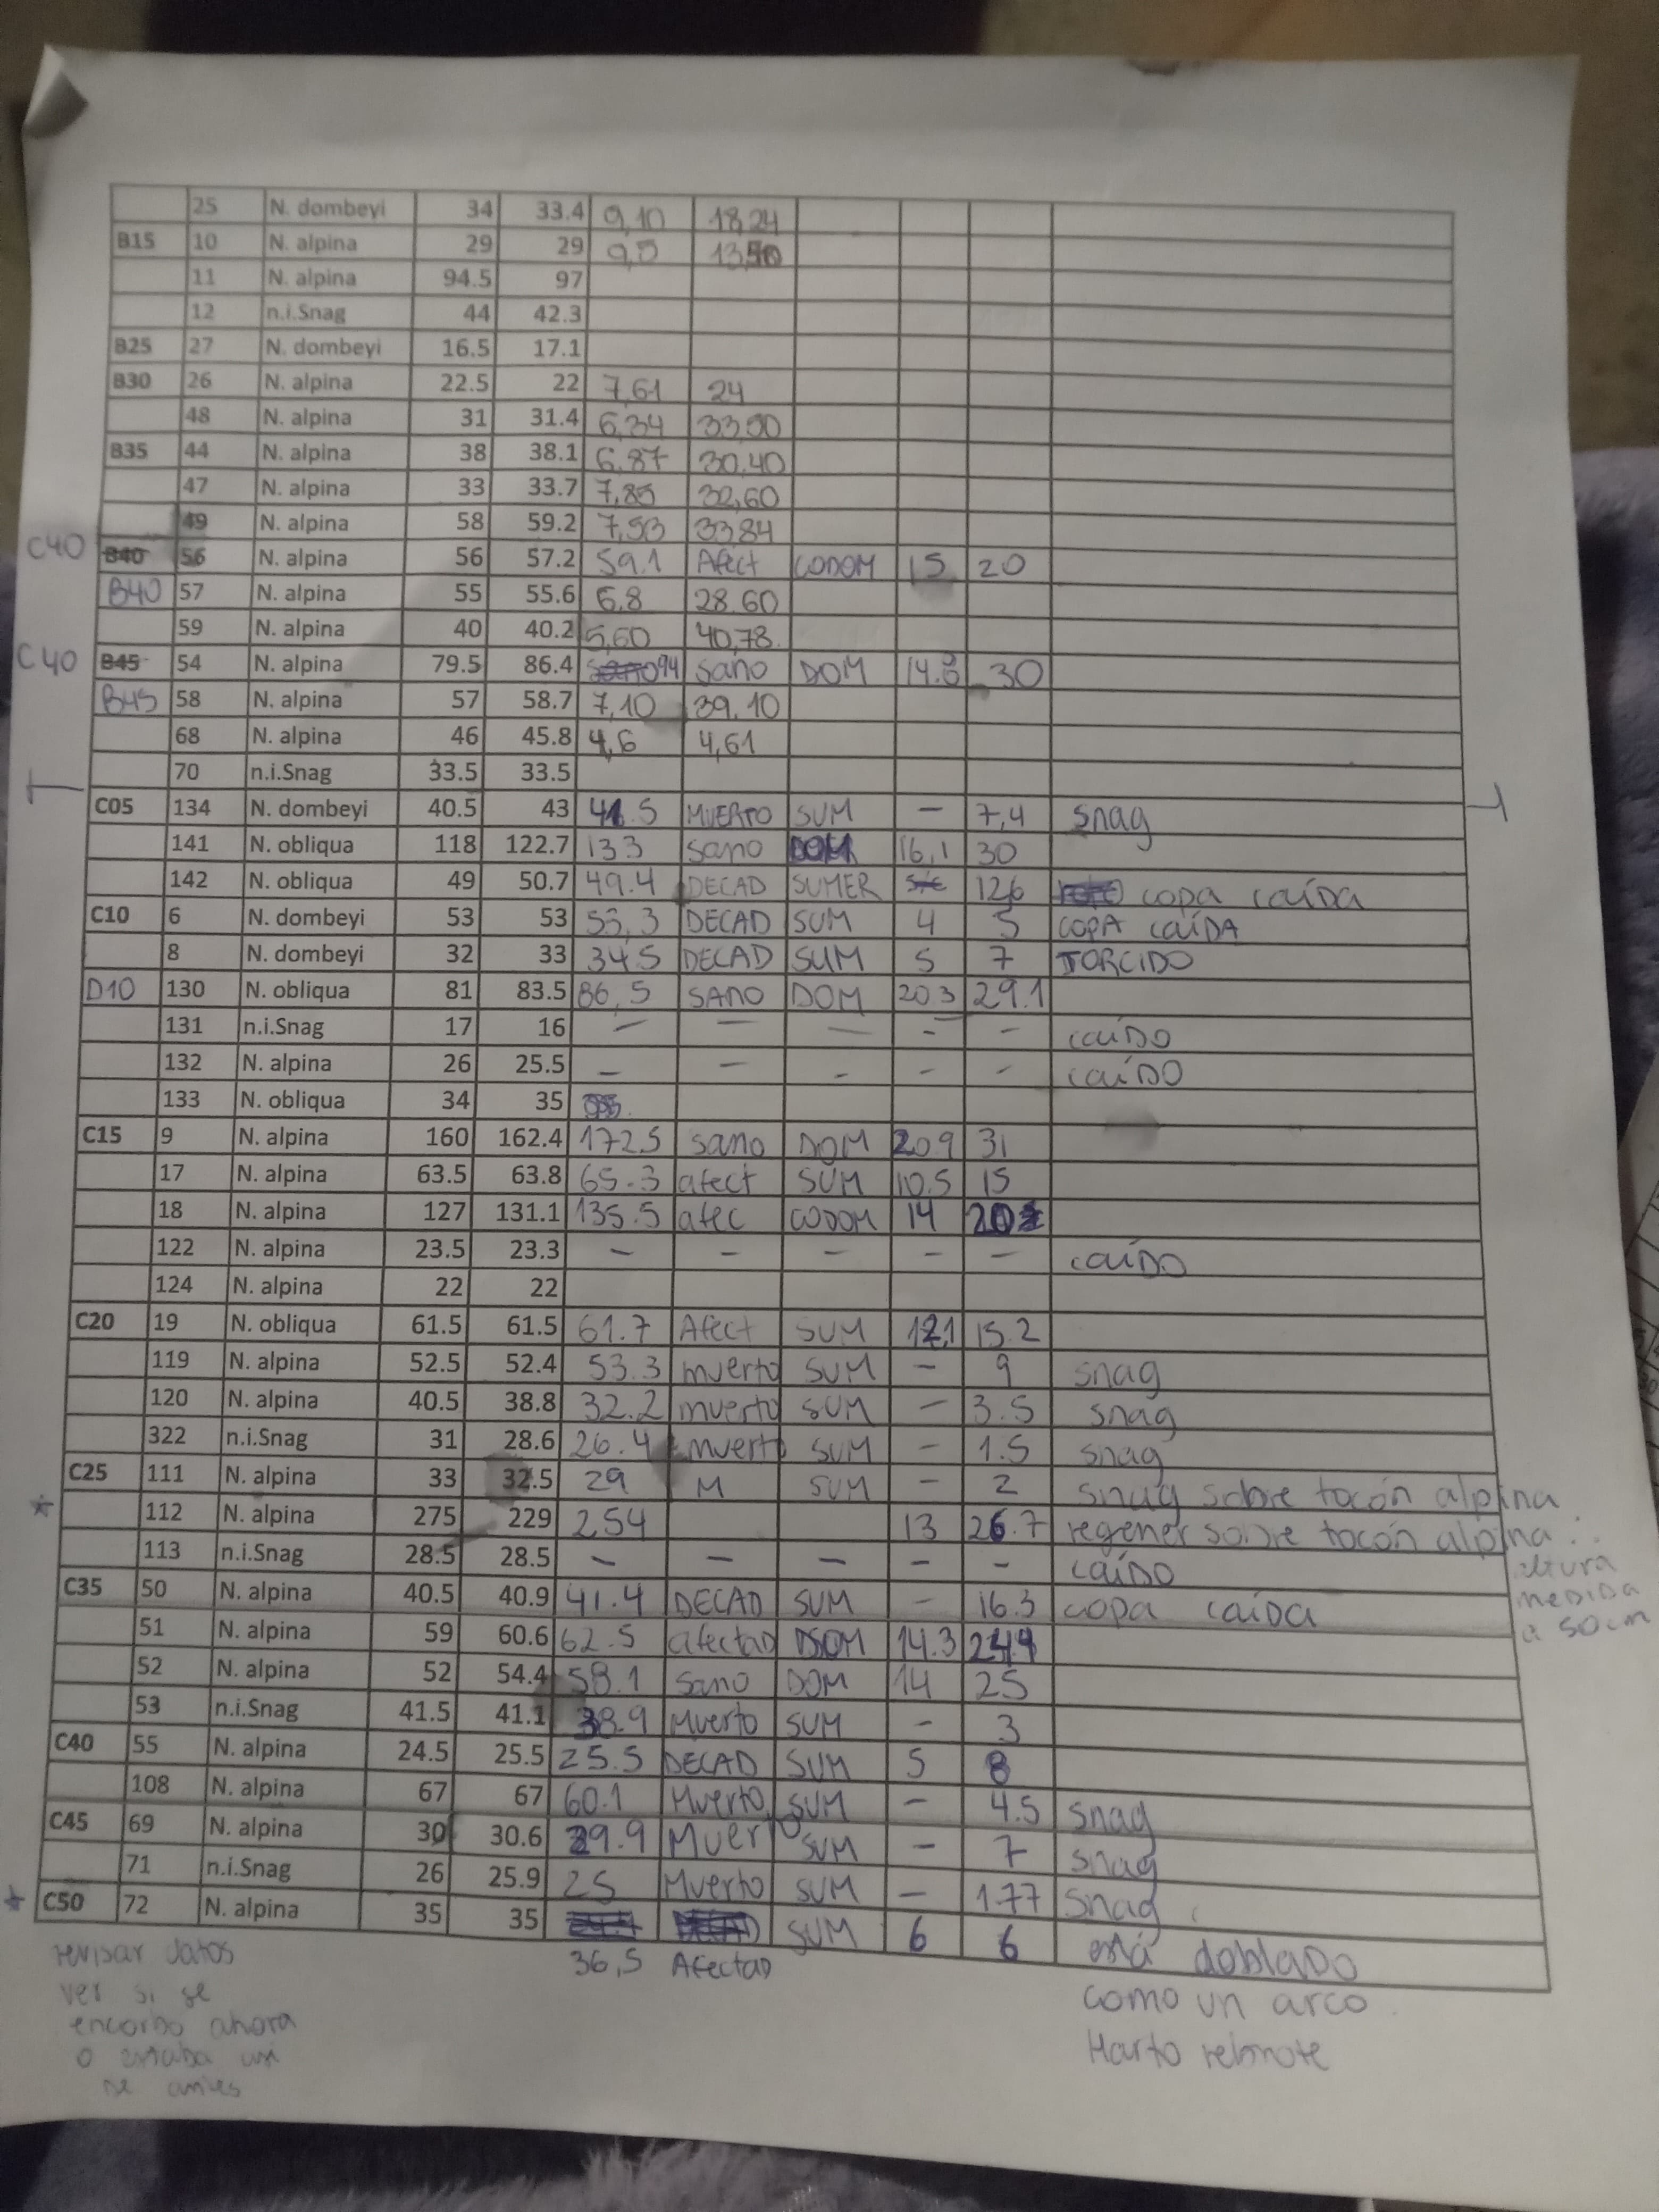 25 N. dombeyi 34 33.4 9,10 18,24
B15 10 N. alpina 29 29 9,5 13,50
11 N. alpina 94.5 97
12 n.i.Snag 44 42.3
B25 27 N. dombeyi 16.5 17.1
B30 26 N. alpina 22.5 22 7,61 24
48 N. alpina 31 31.4 6,34 33,50
B35 44 N. alpina 38 38.1 6.87 30,40
47 N. alpina 33 33.7 7,85 32,60
49 N. alpina 58 59.2 7,53 33,84
C40 B40 56 N. alpina 56 57.2 59.1 Afect CODOM 15 20
B40 57 N. alpina 55 55.6 6.8 28.60
59 N. alpina 40 40.2 5,60 40,78
C40 B45 54 N. alpina 79.5 86.4 94 sano DOM 30
B45 58 N. alpina 57 58.7 7,10 39,10
68 N. alpina 46 45.8 4,6 4,61
70 n.i.Snag 33.5 33.5
C05 134 N. dombeyi 40.5 43 41.5 MUERTO SUM – 7,4 snag
141 N. obliqua 118 122.7 133 sano DOM 16,1 30
142 N. obliqua 49 50.7 49.4 DECAD SUMER 12,6 copa caída
C10 6 N. dombeyi 53 53 53,3 DECAD SUM 4 5 COPA CAÍDA
8 N. dombeyi 32 33 34.5 DECAD SUM 5 7 TORCIDO
D10 130 N. obliqua 81 83.5 86,5 SANO DOM 20.3 29.1
131 n.i.Snag 17 16 – – – – – CAÍDO
132 N. alpina 26 25.5 – – – – – CAÍDO
133 N. obliqua 34 35
C15 9 N. alpina 160 162.4 172.5 sano DOM 20.9 31
17 N. alpina 63.5 63.8 65.3 afect SUM 10.5 15
18 N. alpina 127 131.1 135.5 afec CODOM 14 20
122 N. alpina 23.5 23.3 – – – – – CAÍDO
124 N. alpina 22 22
C20 19 N. obliqua 61.5 61.5 61.7 Afect SUM 12,1 15.2
119 N. alpina 52.5 52.4 53.3 muerto SUM – 9 snag
120 N. alpina 40.5 38.8 32.2 muerto SUM – 3.5 snag
322 n.i.Snag 31 28.6 26.4 muerto SUM – 1.5 snag
C25 111 N. alpina 33 32.5 29 M SUM – 2 snag sobre tocón alpina
* 112 N. alpina 275 229 254 13 26.7 regener sobre tocón alpina :
113 n.i.Snag 28.5 28.5 – – – – – CAÍDO
altura
medida
a 50cm
C35 50 N. alpina 40.5 40.9 41.4 DECAD SUM – 16.3 copa caída
51 N. alpina 59 60.6 62.5 afectad DOM 14.3
52 N. alpina 52 54.4 58.1 Sano DOM 14 25
53 n.i.Snag 41.5 41.1 38.9 Muerto SUM – 3
C40 55 N. alpina 24.5 25.5 25.5 DECAD SUM 5 8
108 N. alpina 67 67 60.1 Muerto SUM – 4.5 snag
C45 69 N. alpina 30 30.6 29.9 Muerto SUM – 7 snag
71 n.i.Snag 26 25.9 25 Muerto SUM – 1.77 snag
* C50 72 N. alpina 35 35 SUM 6 6 está doblado
36,5 Afectad
como un arco
Harto rebrote
revisar datos
ver si se
encorbo ahora
o estaba asi
de antes